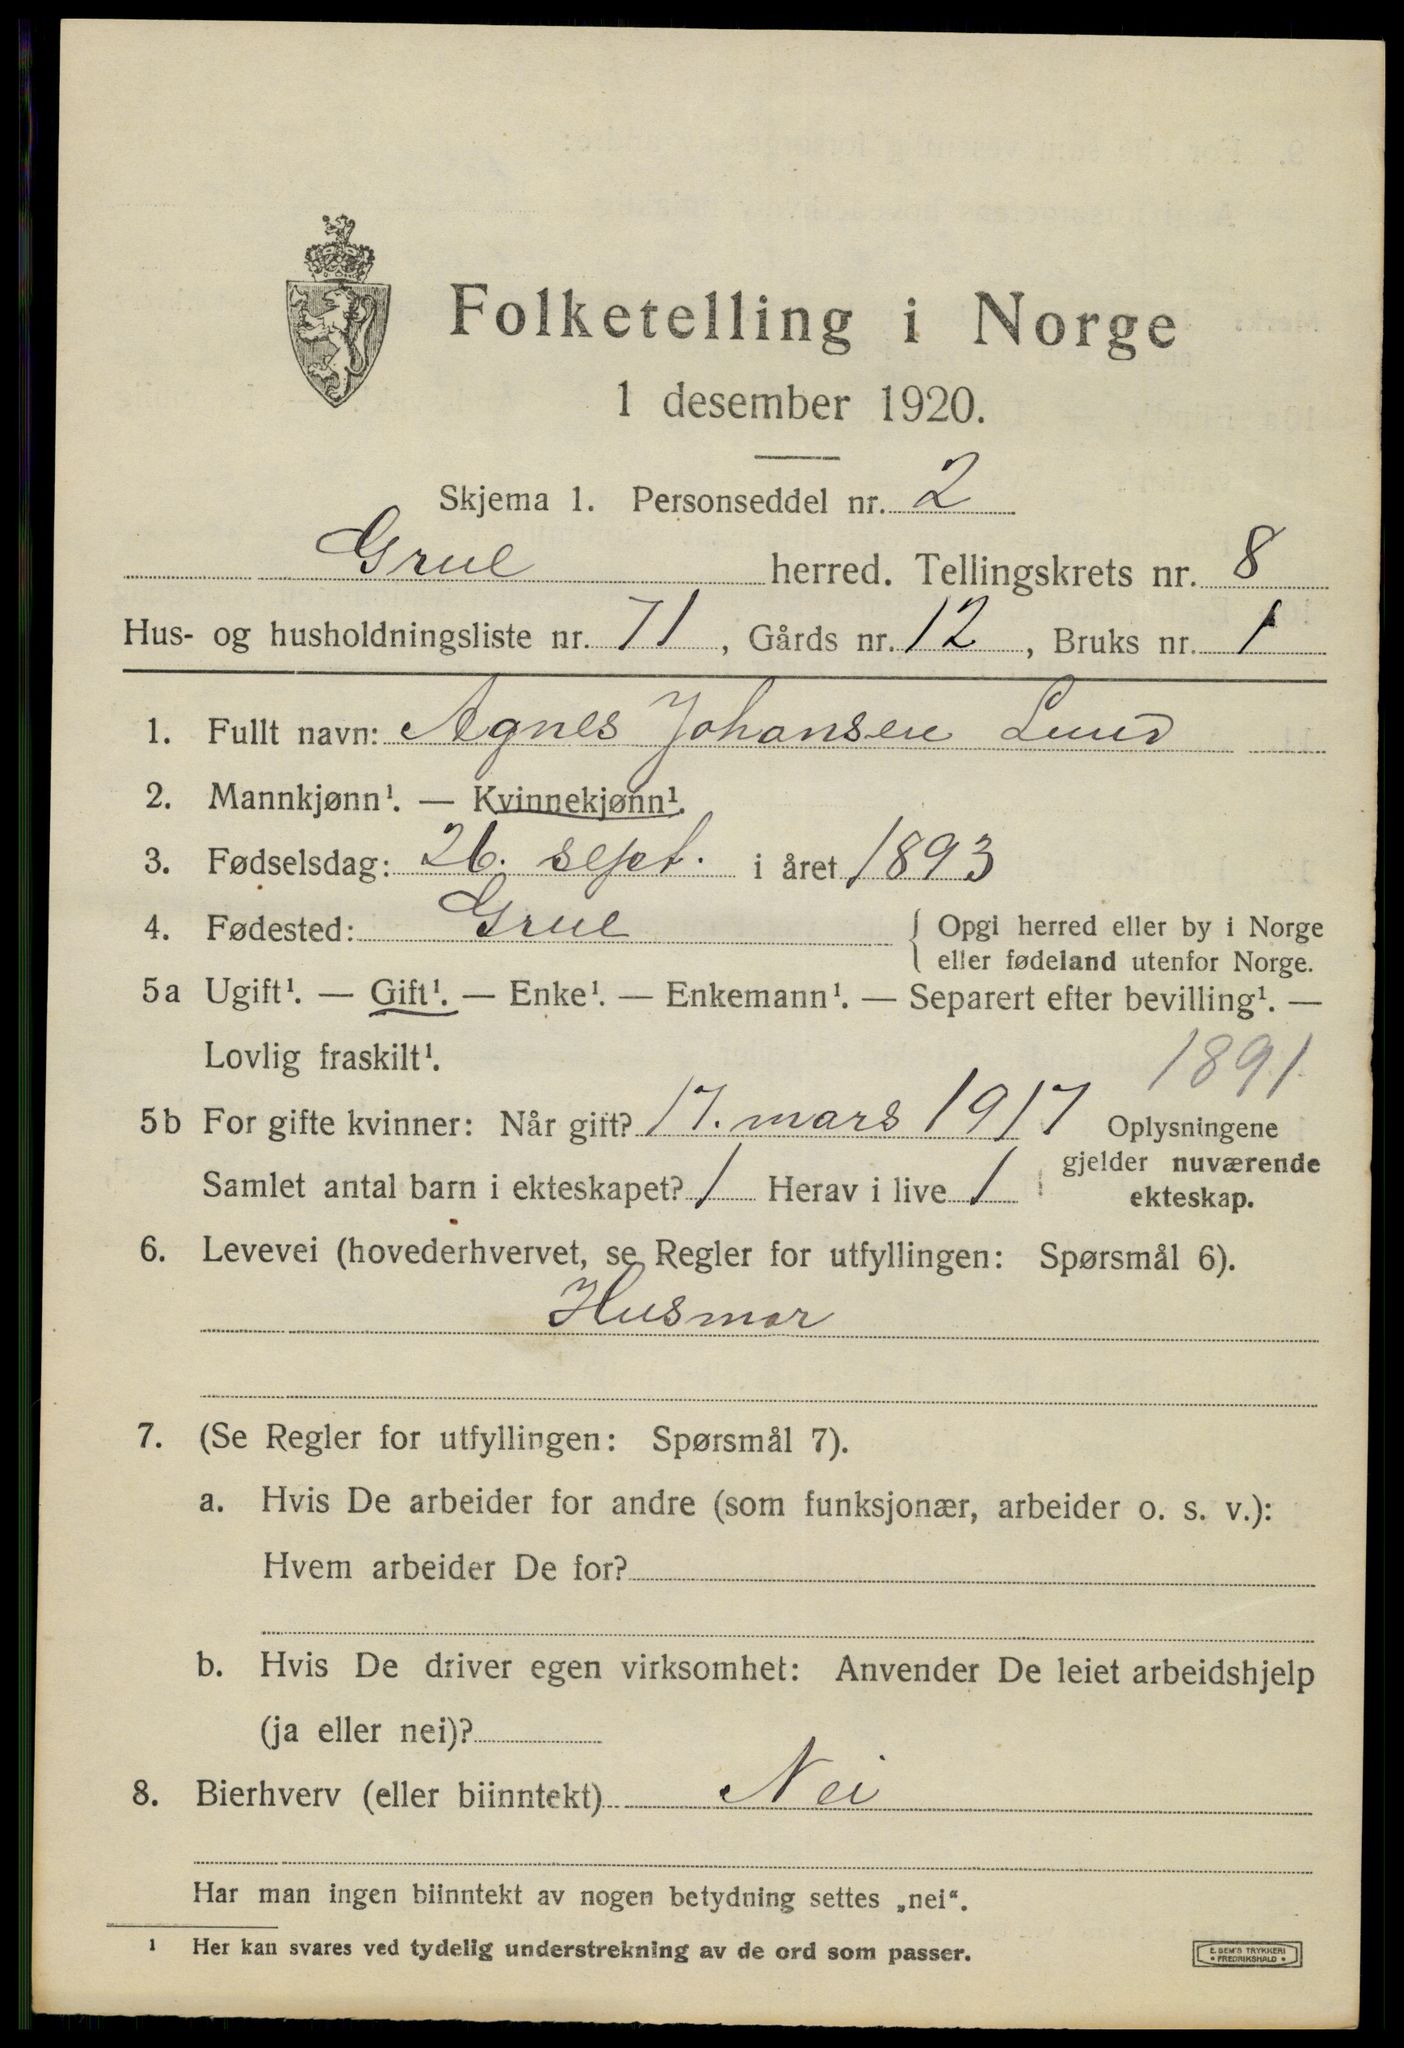 Folketelling i Norge
1 desember 1920.
Skjema 1. Personseddel nr. 2
Grue herred. Tellingskrets nr. 8
Hus- og husholdningsliste nr. 71, Gårds nr. 12, Bruks nr. 1
1. Fullt navn: Agnes Johansen Lund
2. Mannkjønn¹. — Kvinnekjønn¹.
3. Fødselsdag: 26. sept. i året 1893
4. Fødested: Grue { Opgi herred eller by i Norge
eller fødeland utenfor Norge.
5a Ugift¹. — Gift¹. — Enke¹. — Enkemann¹. — Separert efter bevilling¹. —
Lovlig fraskilt¹.
1891
5b For gifte kvinner: Når gift? 17. mars 1917 Oplysningene
gjelder nuværende
Samlet antal barn i ekteskapet? 1 Herav i live 1
ekteskap.
6. Levevei (hovederhvervet, se Regler for utfyllingen: Spørsmål 6).
Husmor
7. (Se Regler for utfyllingen: Spørsmål 7).
a. Hvis De arbeider for andre (som funksjonær, arbeider o. s. v.):
Hvem arbeider De for?
b. Hvis De driver egen virksomhet: Anvender De leiet arbeidshjelp
(ja eller nei)?
8. Bierhverv (eller biinntekt) Nei
Har man ingen biinntekt av nogen betydning settes „nei“.
¹ Her kan svares ved tydelig understrekning av de ord som passer.
E. SEM'S TRYKKERI
• FREDRIKSHALD •